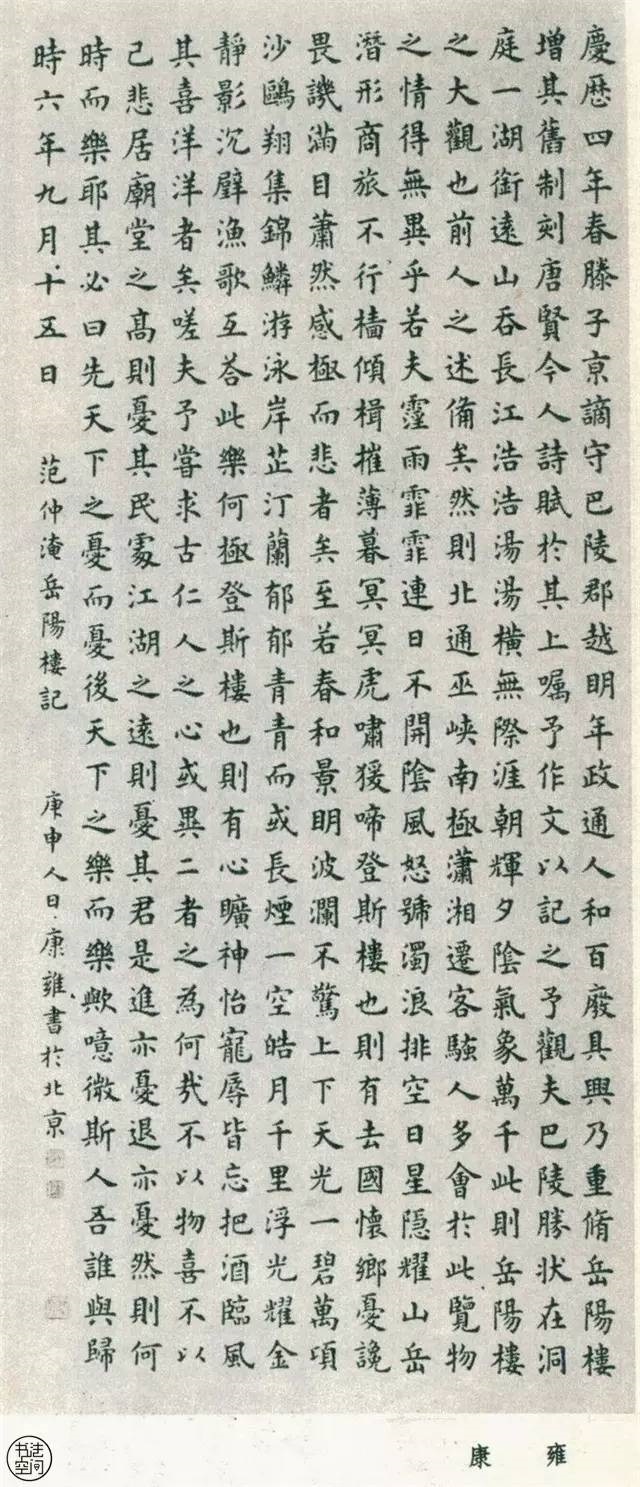 慶歷四年春滕子京謫守巴陵郡越明年政通人和百廢具興乃重脩岳陽樓
增其舊制刻唐賢今人詩賦於其上嘱予作文以記之予觀夫巴陵勝狀在洞
庭一湖銜遠山吞長江浩浩湯湯橫無際涯朝輝夕陰氣象萬千此則岳陽樓
之大觀也前人之述備矣然則北通巫峽南極瀟湘遷客騷人多會於此覽物
之情得無異乎若夫霪雨霏霏連日不開陰風怒號濁浪排空日星隱耀山岳
潛形商旅不行檣傾楫摧薄暮冥冥虎嘯猨啼登斯樓也則有去國懷鄉憂讒
畏譏滿目蕭然感極而悲者矣至若春和景明波瀾不驚上下天光一碧萬頃
沙鷗翔集錦鱗游泳岸芷汀蘭郁郁青青而或長煙一空皓月千里浮光耀金
靜影沉璧漁歌互荅此樂何極登斯樓也則有心曠神怡寵辱皆忘把酒臨風
其喜洋洋者矣嗟夫予嘗求古仁人之心或異二者之為何哉不以物喜不以
己悲居廟堂之高則憂其民處江湖之遠則憂其君是進亦憂退亦憂然則何
時而樂耶其必曰先天下之憂而憂後天下之樂而樂歟噫微斯人吾誰與歸
時六年九月十五日 范仲淹岳陽樓記 庚申人日康雍書於北京
康雍
书法空间